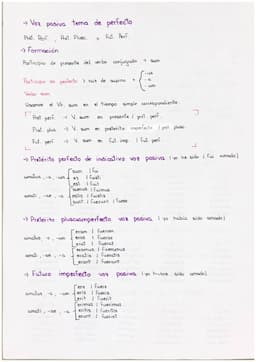 → Voz pasiva tema de perfecto
Pret. Perf., Pret. Plusc. y Fut. Perf.
→ Formación
Participio de presente del verbo conjugado + sum
Participio de perfecto : raíz de supino + { -us
-a
-um
Verbo sum
Usaremos el Vb. sum en el tiempo simple correspondiente.
Pret. perf. → V. sum en presente / pret. perf.
Pret. plus → V. sum en pretérito imperfecto / pret plusc.
Fut. perf → V. sum en fut. imp. / fut perf.
→ Pretérito perfecto de indicativo voz pasiva (yo he sido / fui amado)
sum / fui
es / fuisti
amatus, -a, -um
est / fuit
sumus / fuimus
amati, -ae, -a
estis / fuistis
sunt / fuerunt / fuere
→ Pretérito pluscuamperfecto voz pasiva (yo había sido amado)
eram / fueram
amatus, -a, -um
eras / fueras
erat / fuerat
eramus / fueramus
amati, -ae, -a
eratis / fueratis
erant / fuerant
→ Futuro imperfecto voz pasiva (yo habré sido amado)
ero / fuero
amatus, -a, -um
eris / fueris
erit / fuerit
erimus / fuerimus
amati, -ae, -a
eritis / fueritis
erunt / fuerint